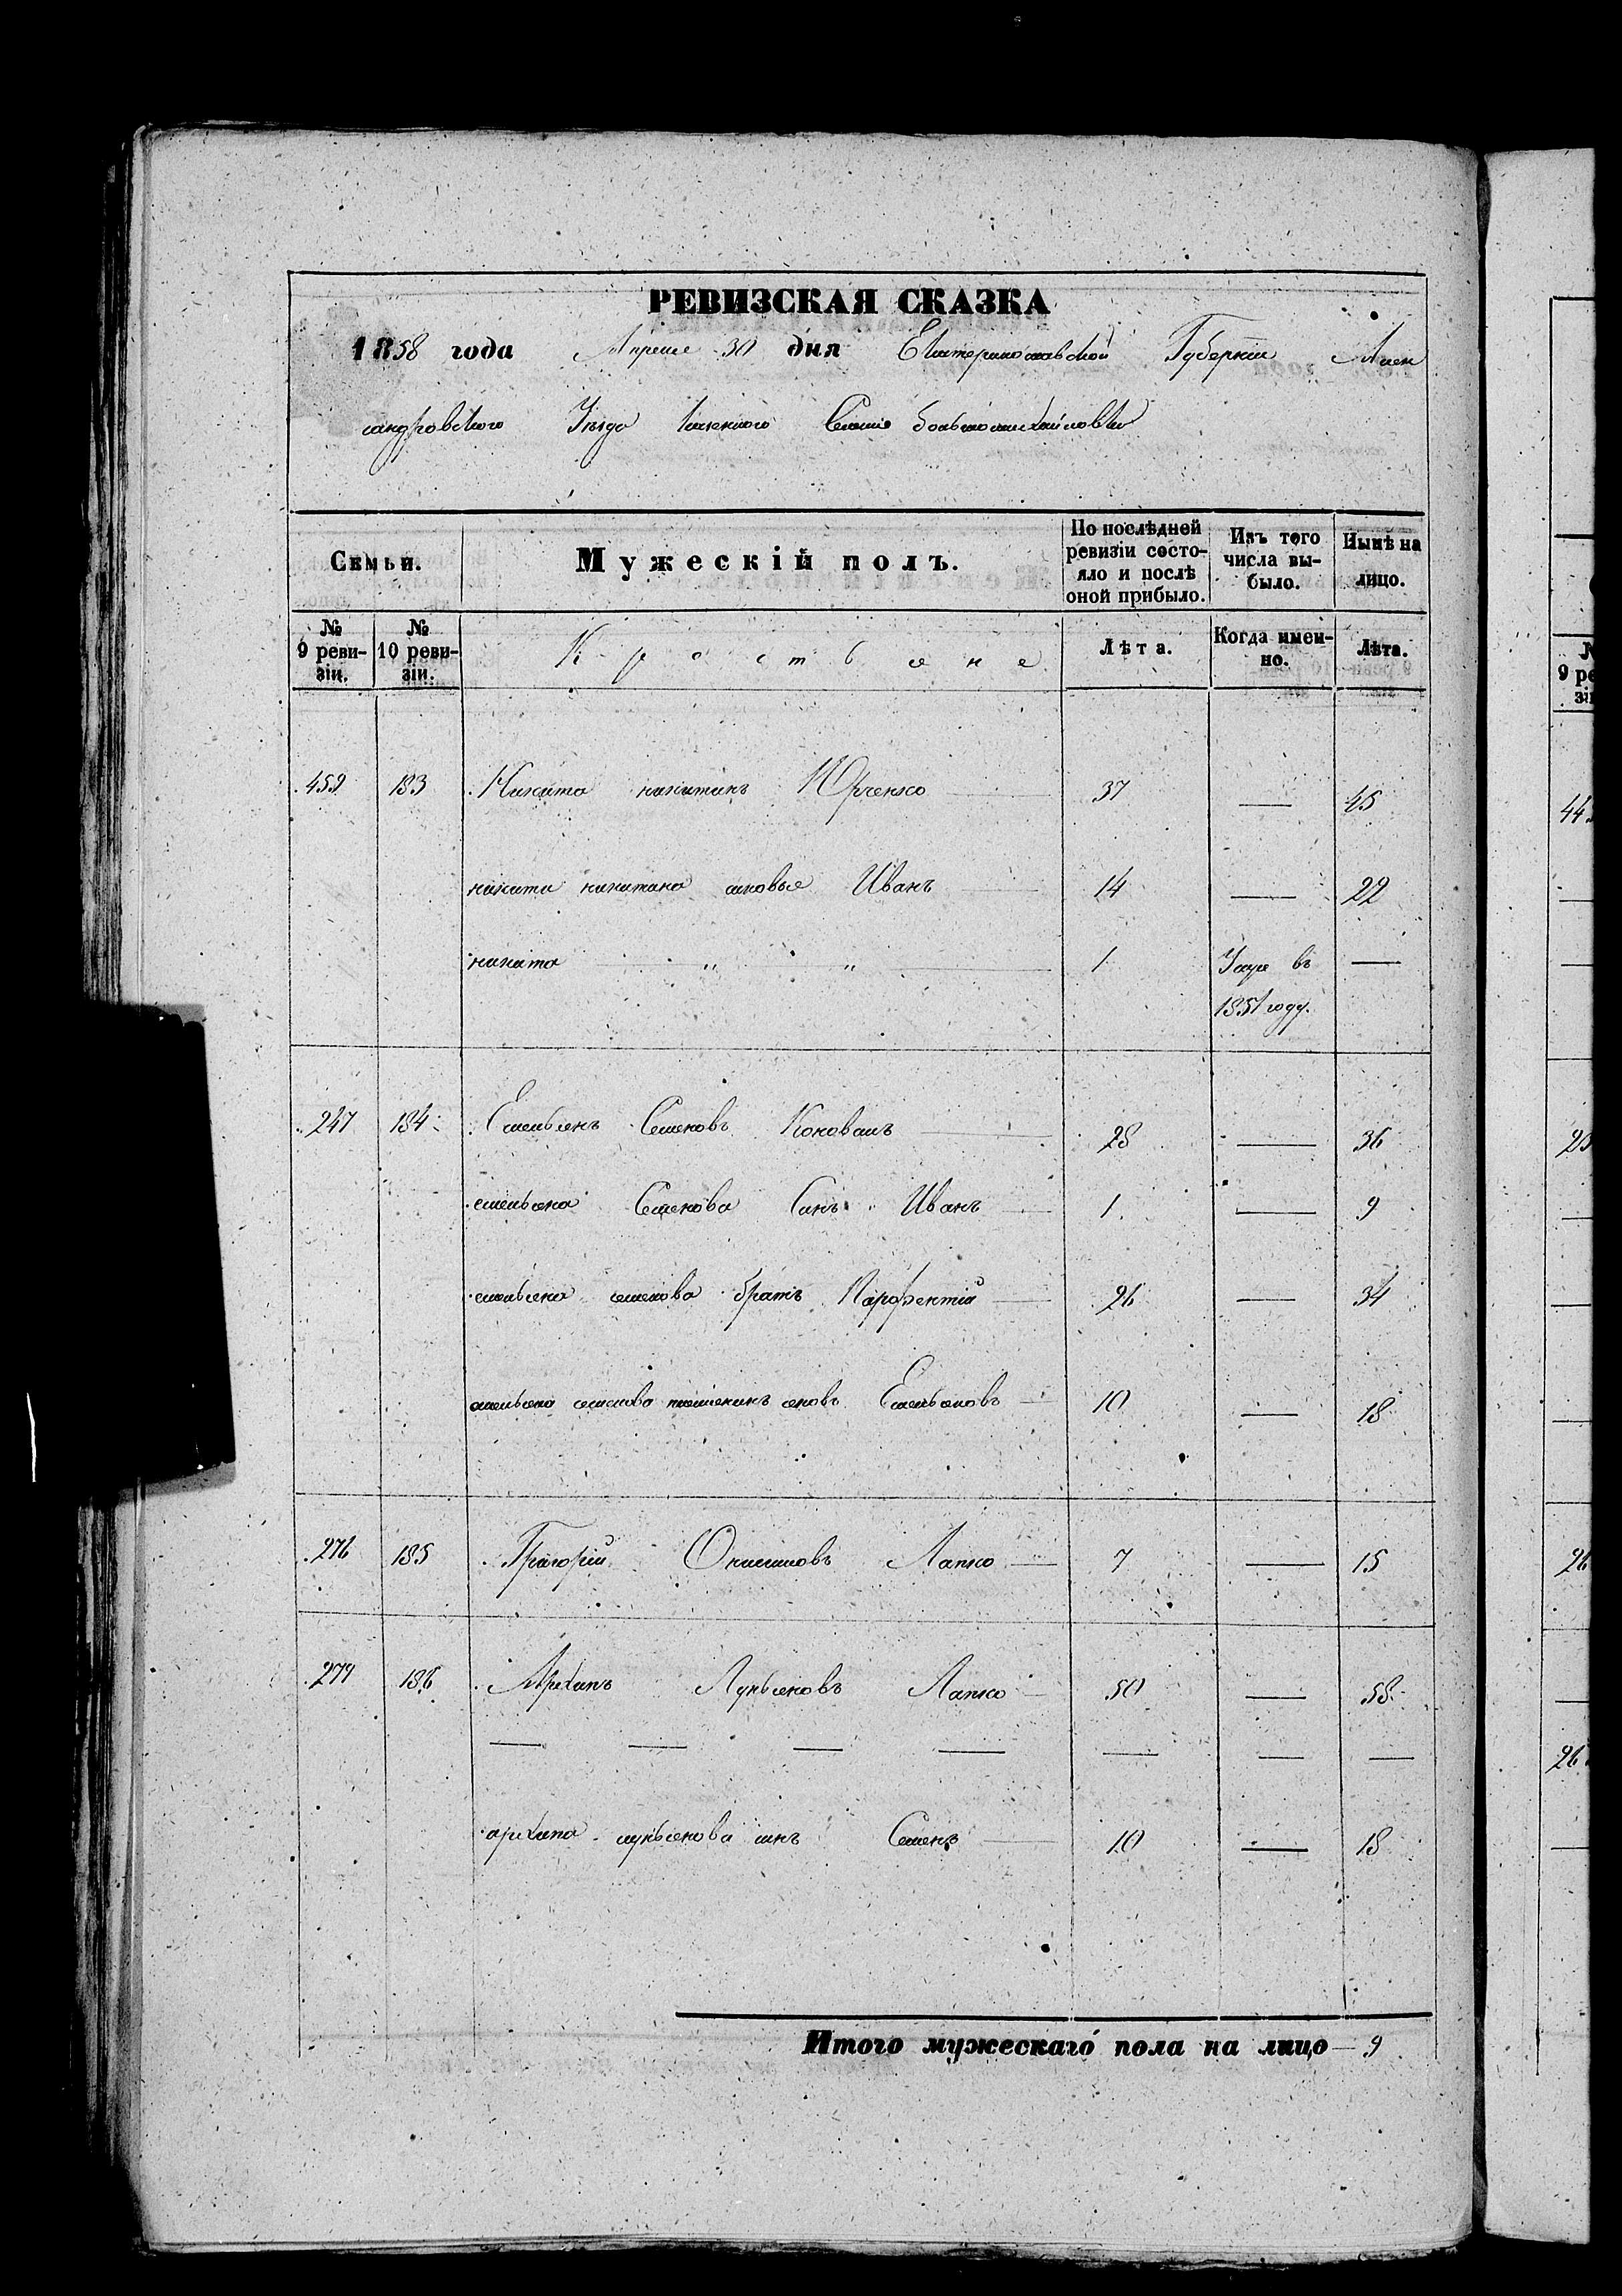 РЕВИЗСКАЯ СКАЗКА
1858 года Апреле 30 дня Екатеринославской Губерніи Алек
сандровского Уезда Казенного Селенія большомихайловки
Семьи. Мужескій полъ. По послѣдней ревизіи состояло и послѣ оной прибыло. Изъ того числа выбыло. Нынѣ на лицо.
№ 9 ревизіи. № 10 ревизіи. Крестьяне Лѣта. Когда именно. Лѣта.
459 183 Никита никитинъ Юрченко 37 — 45
никити никитина сыновье Иванъ 14 — 22
никита „ „ 1 Умре въ 1851 году. —
247 184 Емельянъ Семеновъ Коновалъ 28 — 36
емельяна Семенова Сынъ Иванъ 1 — 9
емельяна семенова братъ Парфентій 26 — 34
емельяна семенова Емельяновъ 10 — 18
276 185 Григорій Онисимовъ Лапко 7 — 15
279 186 Архипъ Лукьяновъ Лапко 50 — 58
— — — — — — —
архипа лукьянова сынъ Семенъ 10 — 18
Итого мужескаго пола на лицо — 9
44
9 ре
26
26